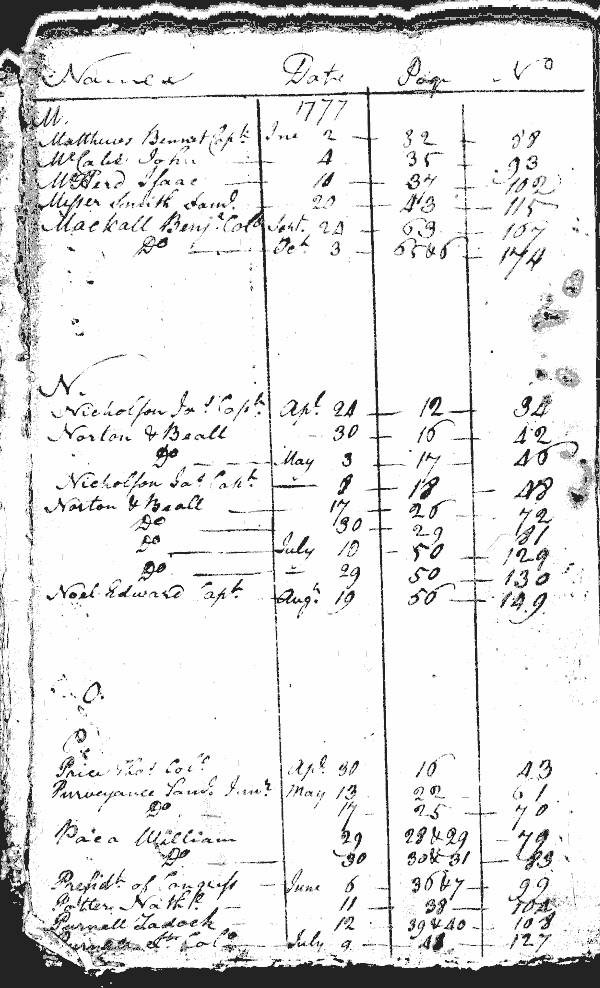 Names Date Page No
M. 1777
Matthews Bennet Capt. June 2 — 32 — 88
McCabe John 4 — 35 — 93
Isaac — 10 — 37 — 102
Messer Smith Saml. — 20 — 43 — 115
Mackall Benj. Colo. Sept. 24 — 63 — 167
Do — Oct. 3 — 65 & 6 — 174
N.
Nicholson Jas. Capt. Apl. 24 — 12 — 34
Norton & Beall 30 — 16 — 42
Do — May 3 — 17 — 46
Nicholson Jas. Capt. — 8 — 18 — 48
Norton & Beall — 17 — 26 — 72
Do — 30 — 29 — 81
Do — July 10 — 50 — 129
Do — 29 — 50 — 130
Noel Edward Capt. Augt. 19 — 56 — 149
O.
P.
Price Thos. Colo. Apl. 30 16 43
Purveyance Saml. Junr. May 13 22 61
Do 17 25 70
Paca William 29 28 & 29 — 79
Do — 30 30 & 31 — 83
Presidt. of Congress — June 6 — 36 & 7 — 99
Potter Nathl. — 11 — 38 — 104
Purnell Zadock 12 39 & 40 — 108
Colo. — July 9 — 48 — 127